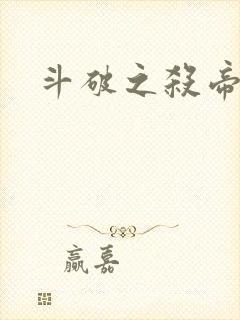 斗破之殺帝
嬴嘉